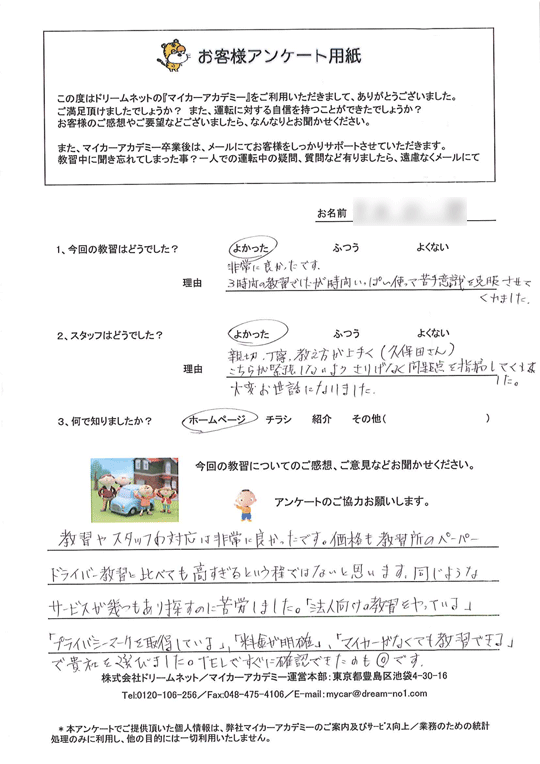 お客様アンケート用紙
この度はドリームネットの『マイカーアカデミー』をご利用いただきまして、ありがとうございました。
ご満足頂けましたでしょうか？ また、運転に対する自信を持つことができたでしょうか？
お客様のご感想やご要望などございましたら、なんなりとお聞かせください。
また、マイカーアカデミー卒業後は、メールにてお客様をしっかりサポートさせていただきます。
教習中に聞き忘れてしまった事？一人での運転中の疑問、質問など有りましたら、遠慮なくメールにて
お名前
1、今回の教習はどうでした？ よかった ふつう よくない
非常に良かったです。
理由 3時間の教習でしたが時間いっぱい使って苦手意識を克服させて
くれました。
2、スタッフはどうでした？ よかった ふつう よくない
親切、丁寧、教え方が上手く（久保田さん）
理由 こちらが緊張しないようさりげなく問題点を指摘してくれま
した。
大変お世話になりました。
3、何で知りましたか？ ホームページ チラシ 紹介 その他( )
今回の教習についてのご感想、ご意見などお聞かせください。
アンケートのご協力お願いします。
教習やスタッフの対応は非常に良かったです。価格も教習所のペーパー
ドライバー教習と比べても高すぎるという程ではないと思います。同じような
サービスが幾つもあり探すのに苦労しました。「法人向けの教習をやっている」
「プライバシーマークを取得している」、「料金が明確」、「マイカーがなくても教習できる」
で貴社を選びました。TELですぐに確認できたのも◎です。
株式会社ドリームネット／マイカーアカデミー運営本部：東京都豊島区池袋4-30-16
Tel:0120-106-256／Fax:048-475-4106／E-mail:mycar@dream-no1.com
＊本アンケートでご提供頂いた個人情報は、弊社マイカーアカデミーのご案内及びサービス向上／業務のための統計
処理のみに利用し、他の目的には一切利用いたしません。